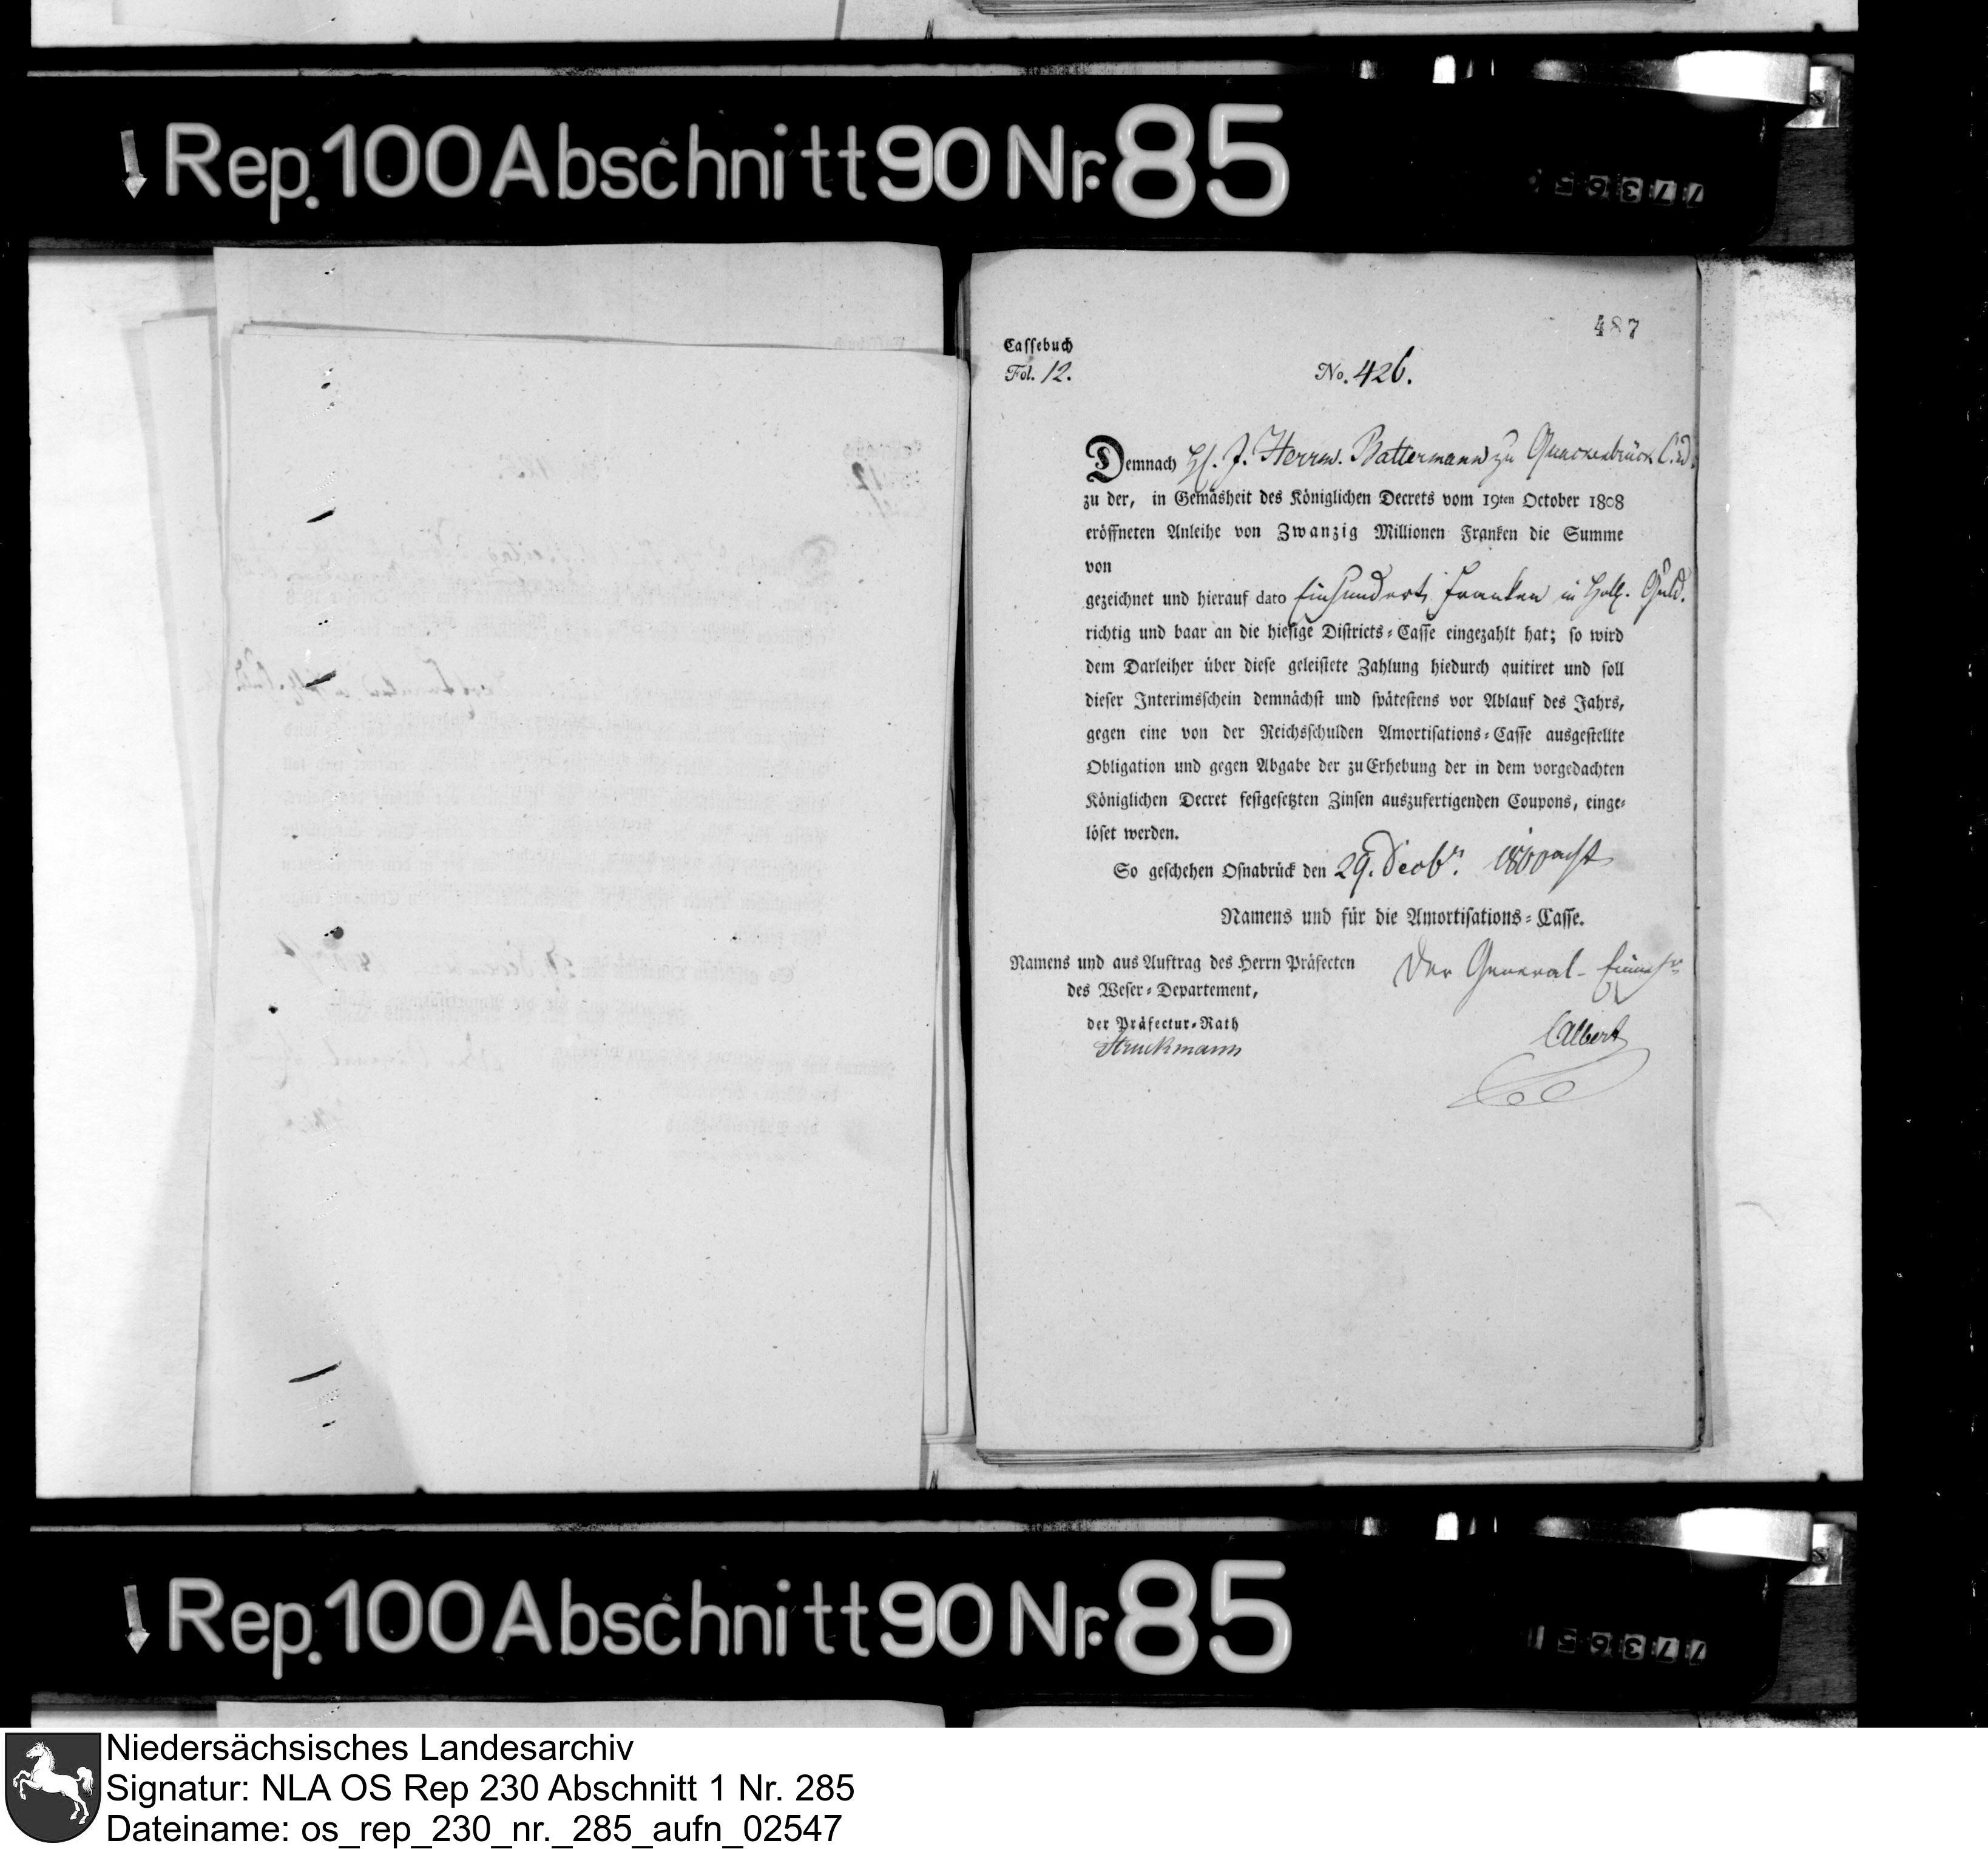 Rep. 100 Abschnitt 90 Nr. 85
487
Cassebuch
Fol. 12.
No. 426.
Demnach H. J. Herrm. Battermann zu Quackenbrück
zu der, in Gemäsheit des Königlichen Decrets vom 19ten October 1808
eröffneten Anleihe von Zwanzig Millionen Franken die Summe
von
gezeichnet und hierauf dato Einhundert Franken in Holl. Guld.
richtig und baar an die hiesige Districts-Casse eingezahlt hat; so wird
dem Darleiher über diese geleistete Zahlung hiedurch quitiret und soll
dieser Interimsschein demnächst und spätestens vor Ablauf des Jahrs,
gegen eine von der Reichsschulden Amortisations-Casse ausgestellte
Obligation und gegen Abgabe der zu Erhebung der in dem vorgedachten
Königlichen Decret festgesetzten Zinsen auszufertigenden Coupons, einge-
löset werden.
So geschehen Osnabrück den 29. Decbr. 1800 acht
Namens und für die Amortisations-Casse.
Namens und aus Auftrag des Herrn Präfecten
des Weser-Departement,
der Präfectur-Rath
Struckmann
Der General-Einnehmer
Calbert
Rep. 100 Abschnitt 90 Nr. 85
Niedersächsisches Landesarchiv
Signatur: NLA OS Rep 230 Abschnitt 1 Nr. 285
Dateiname: os_rep_230_nr._285_aufn_02547